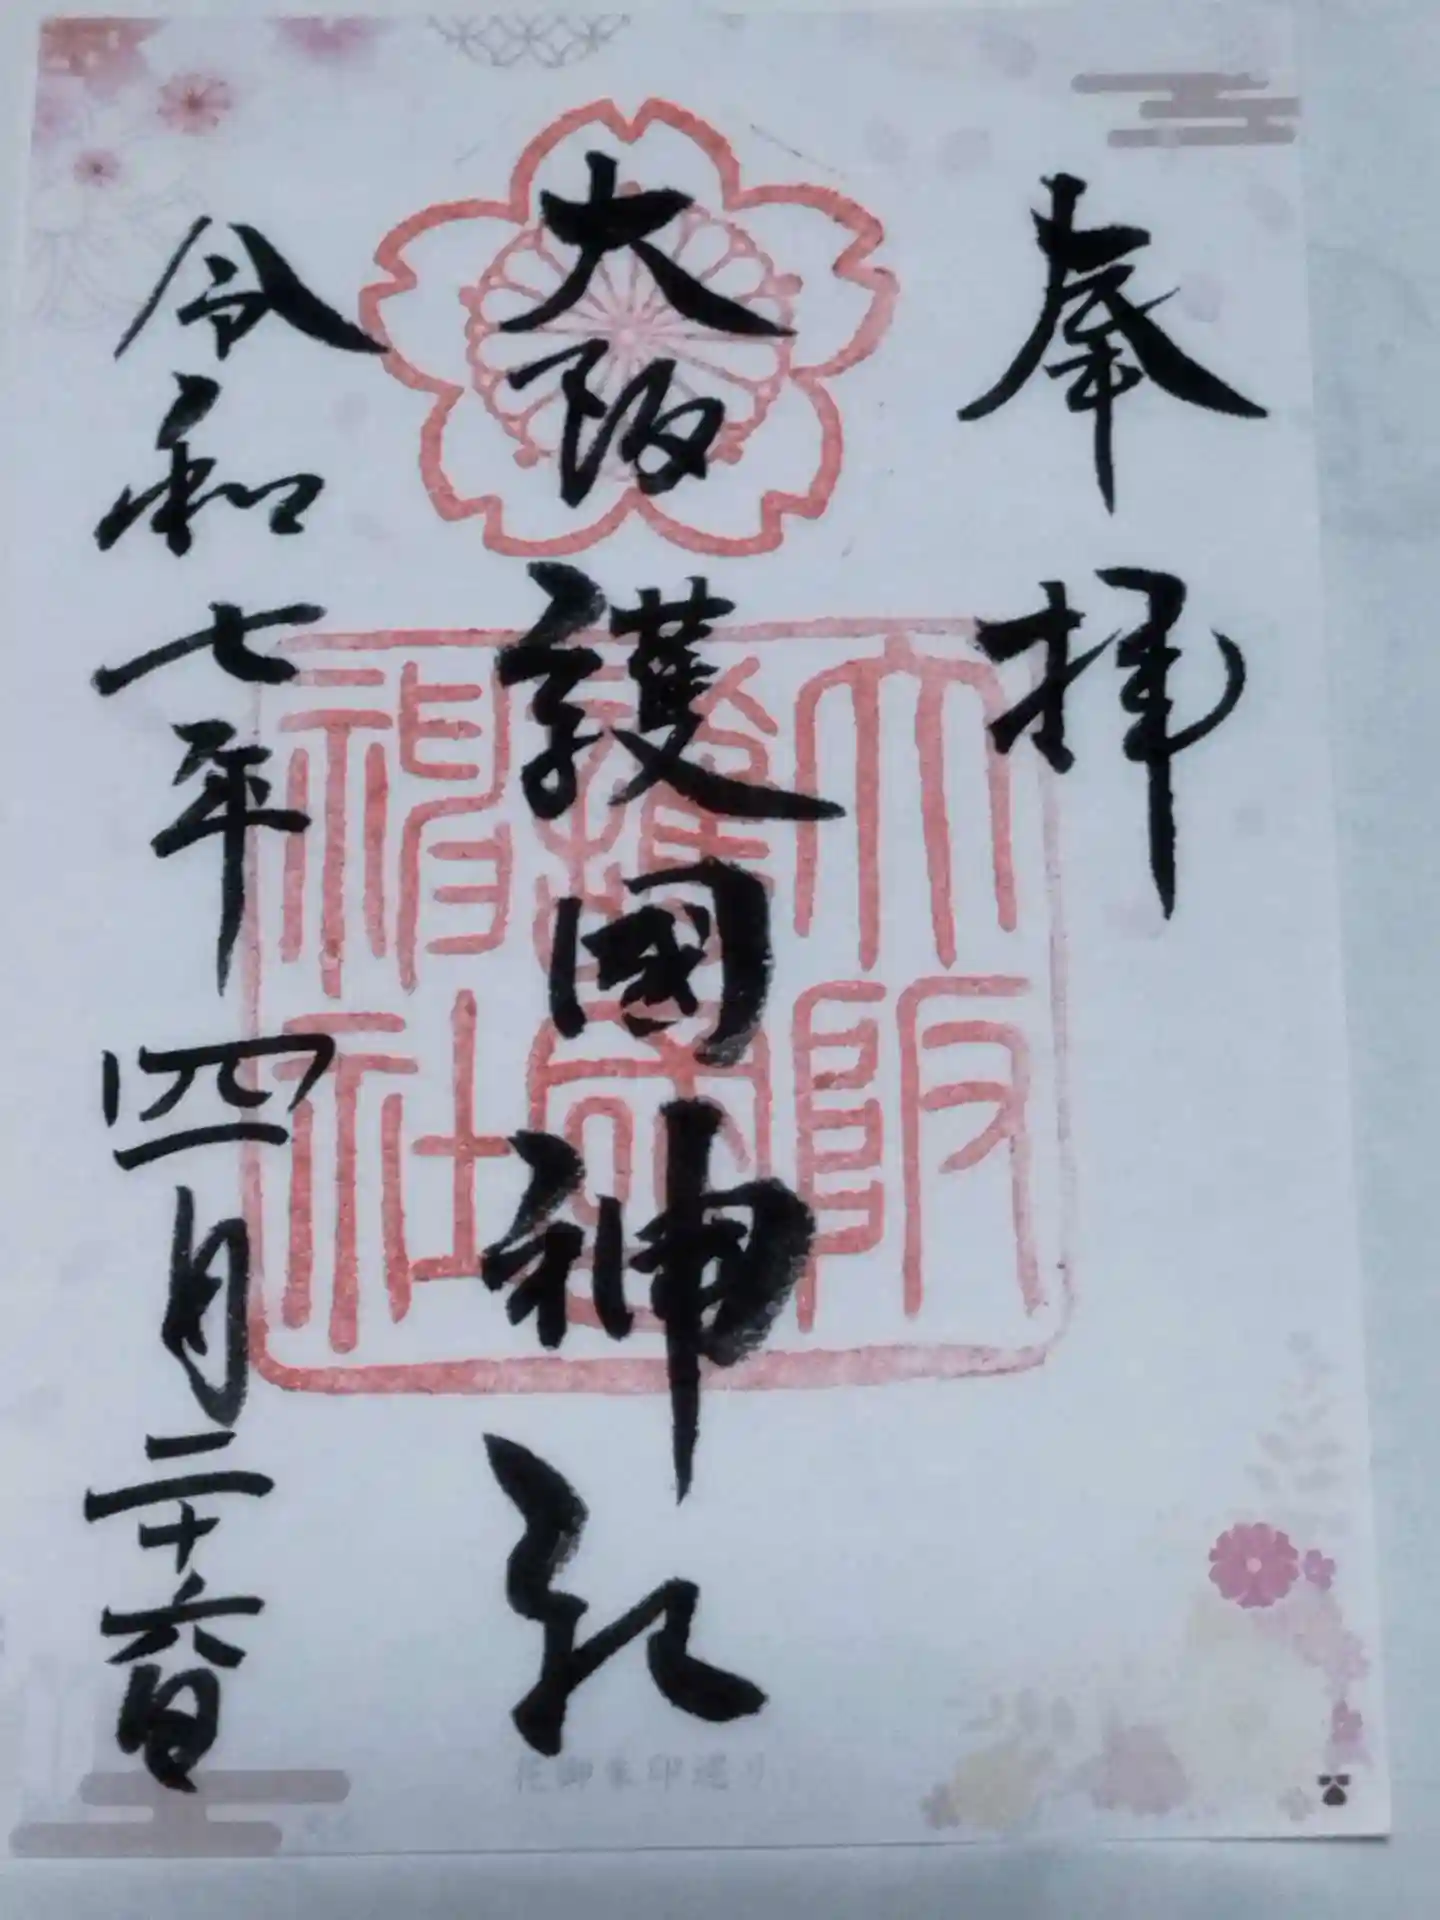 奉拝
大阪護國神社
大阪護國神社
令和七年四月二十六日
花御朱印巡り